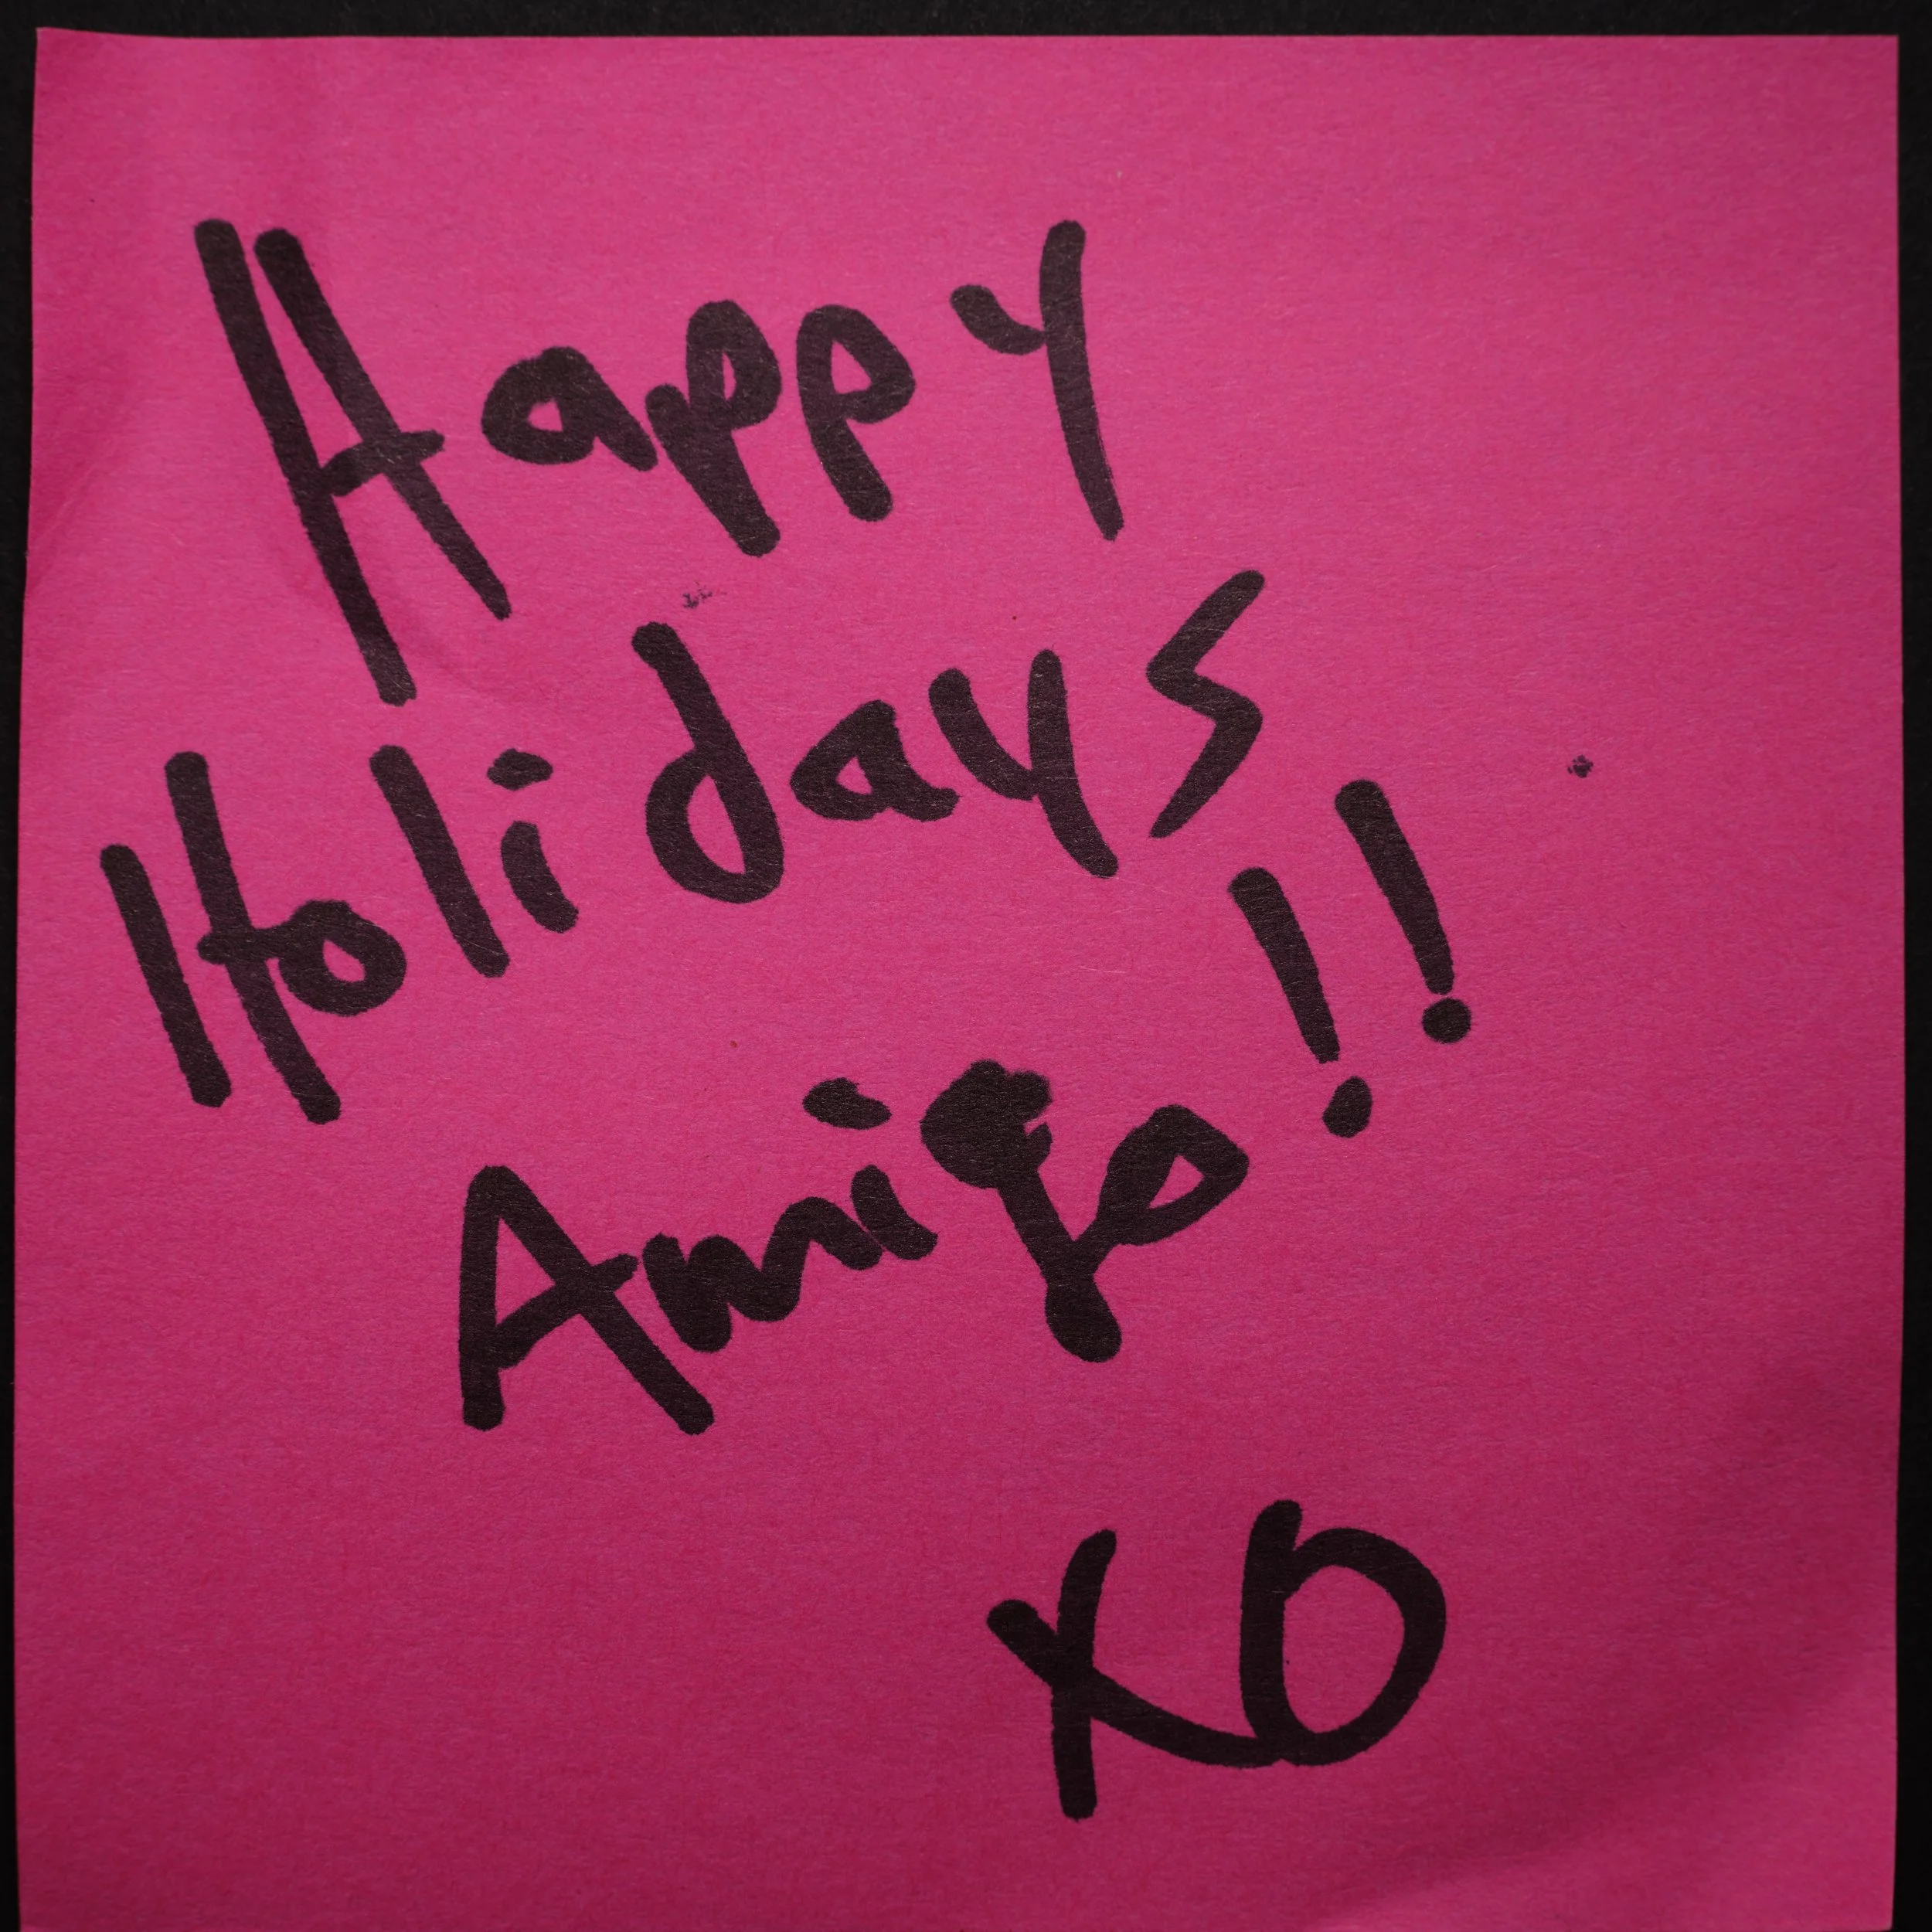 Happy
Holidays
Amigo!!
XO